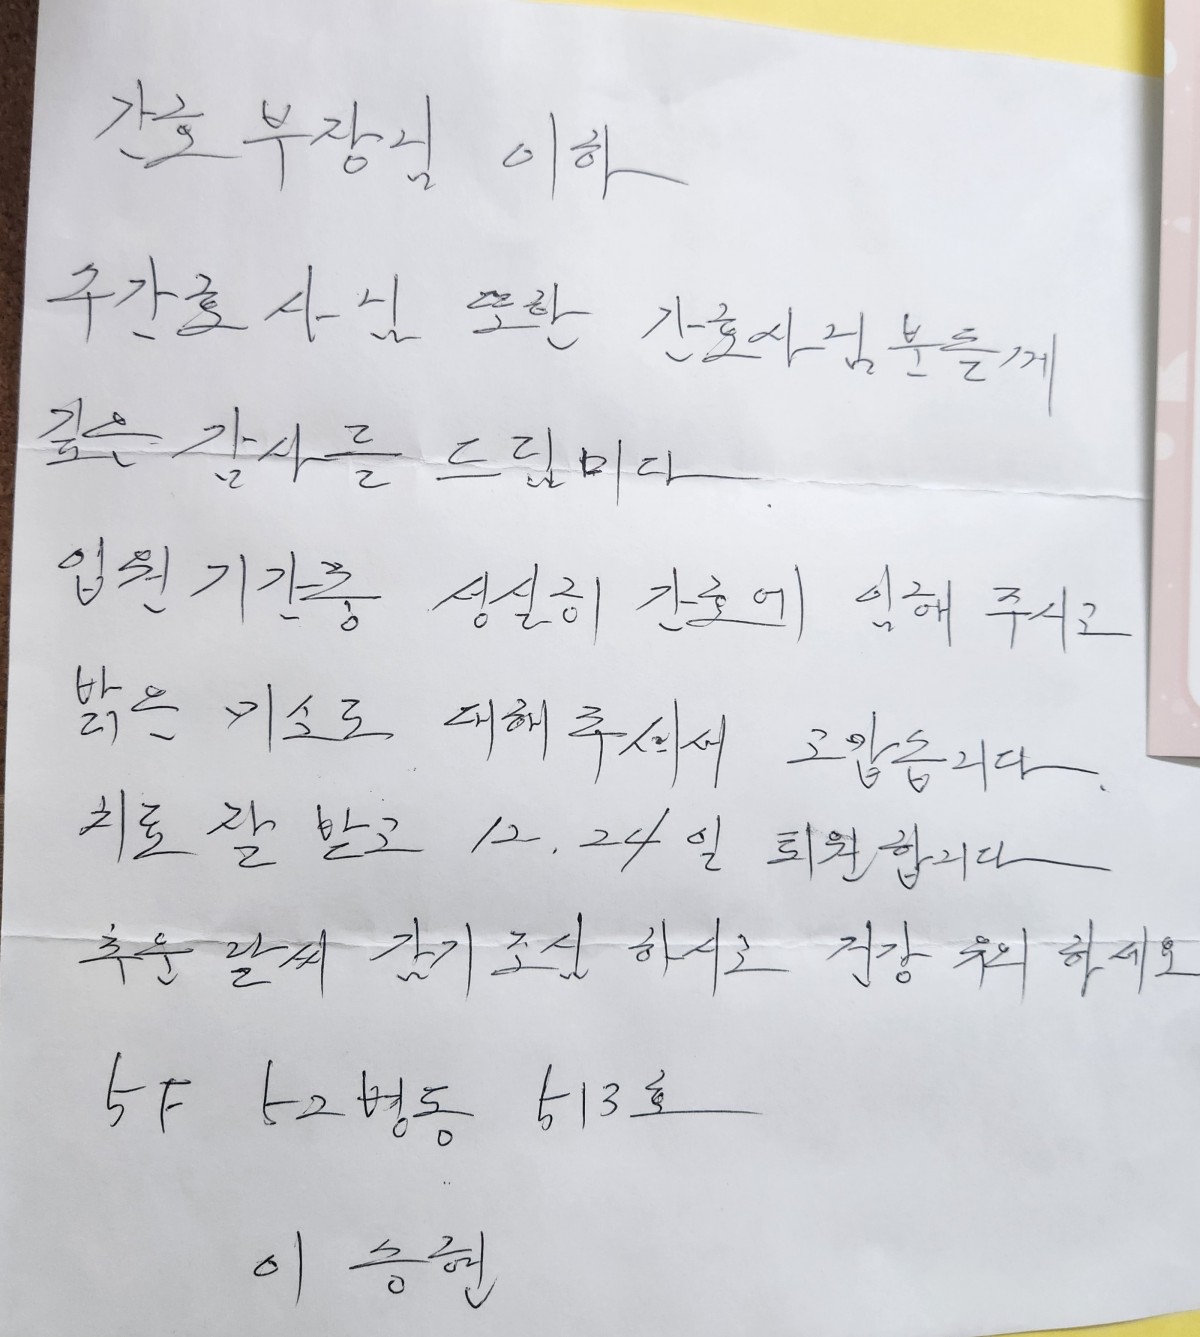 간호 부장님 이하
수간호사님 또한 간호사님분들게
깊은 감사를 드립미다.
입원 기간중 성실히 간호에 임해 주시고
밝은 미소로 대해주셔서 고맙습니다.
치료 잘 받고 12.24일 퇴원합니다
추운 날씨 감기조심 하시고 건강 유의하세요
5F 52병동 513호
이승현